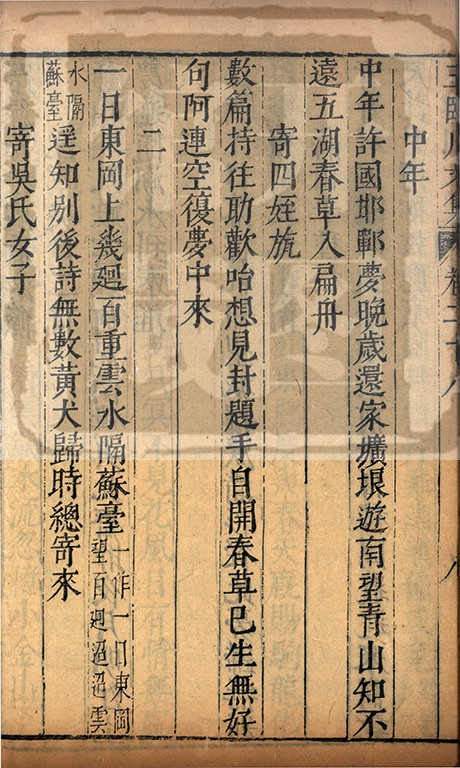 王臨川文集 卷二十八 八
中年
中年許國邯鄲夢晚歲還家壙埌遊南望青山知不
遠五湖春草入扁舟
寄四姪旊
數篇持往助歡咍想見封題手自開春草已生無好
句阿連空復慶中來
二
一日東岡上幾廻百重雲水隔蘇臺一作一日東岡望百廻迢迢雲
水隔蘇臺遥知別後詩無數黃犬歸時總寄來
寄吳氏女子